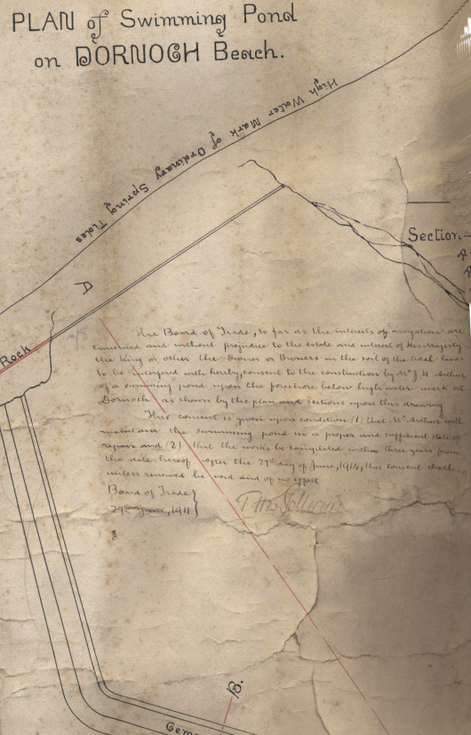 PLAN of Swimming Pond
on DORNOCH Beach.
High Water Mark of Ordinary Spring Tides
Section
A
Rock
The Board of Trade, so far as the interests of navigation are
concerned and without prejudice to the estate and interest of His Majesty
the King or other the Owner or Owners in the soil of the tidal lands
to be interfered with hereby, consent to the construction by Mr J. H. Arthur
of a swimming pond upon the foreshore below high water mark at
Dornoch as shown by the plan and sections upon this drawing
This consent is given upon condition (1) that Mr Arthur will
maintain the swimming pond in a proper and sufficient state of
repair and (2) that the works be completed within three years from
the date hereof after the 29th day of June, 1914, this consent shall,
unless renewed be void and of no effect
Board of Trade
29th June, 1911
B.
Ceme